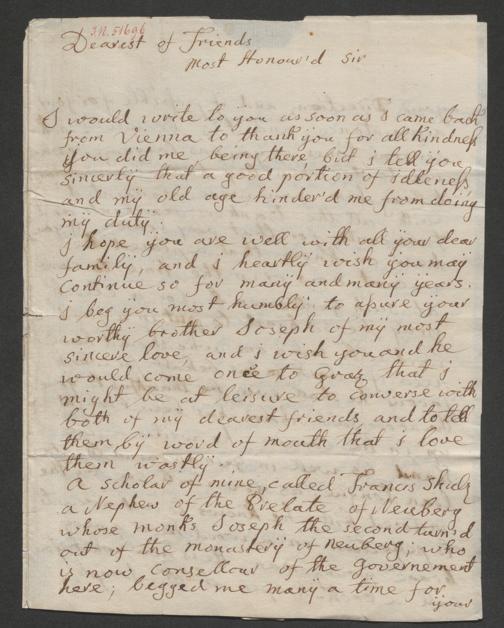 3N. 51696
Dearest of Friends
Most Honour'd Sir
I would write to you as soon as j came back
from Vienna to thank you for all kindness
you did me, being there, but j tell you
sincerly that a good portion of idleness
and my old age hinder'd me from doing
my duty.
j hope you are well with all your dear
family, and j heartly wish you may
continue so for many and many years.
j beg you most humbly to apure your
worthy brother Joseph of my most
sincere love, and j wish you and he
would come once to Gratz that j
might be at leisure to converse with
both of my dearest friends and to tell
them by word of mouth that j love
them wastly
A scholar of mine, called Francis
a Nephew of the Prelate of Neuberg
whose monks Joseph the second turn'd
out of the monastery of neuberg; who
is now Consellour of the Governement
here; begged me many a time for
your